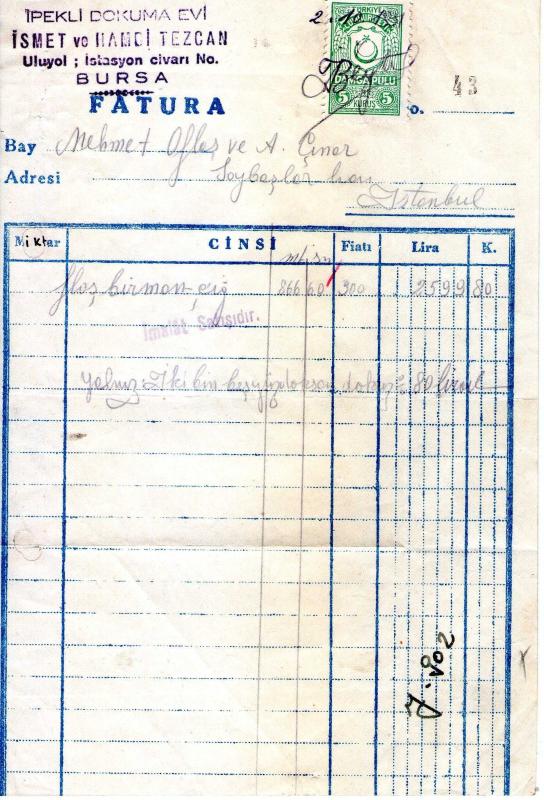 İPEKLİ DOKUMA EVİ
İSMET ve HAMDİ TEZCAN
Uluyol ; İstasyon civarı No.
BURSA
FATURA
TÜRKİYE
DAMGA PULU
5 KURUŞ 5
o. 43
Bay Mehmet ve A. Çınar
Adresi han
İstanbul
Miktar CİNSİ Fiatı Lira K.
mt. sn
Floş birman çiğ 866 60 300 2599 80
İmalât Satışıdır.
Yalnız İki bin beşyüzdoksan dokuz 80 liradır